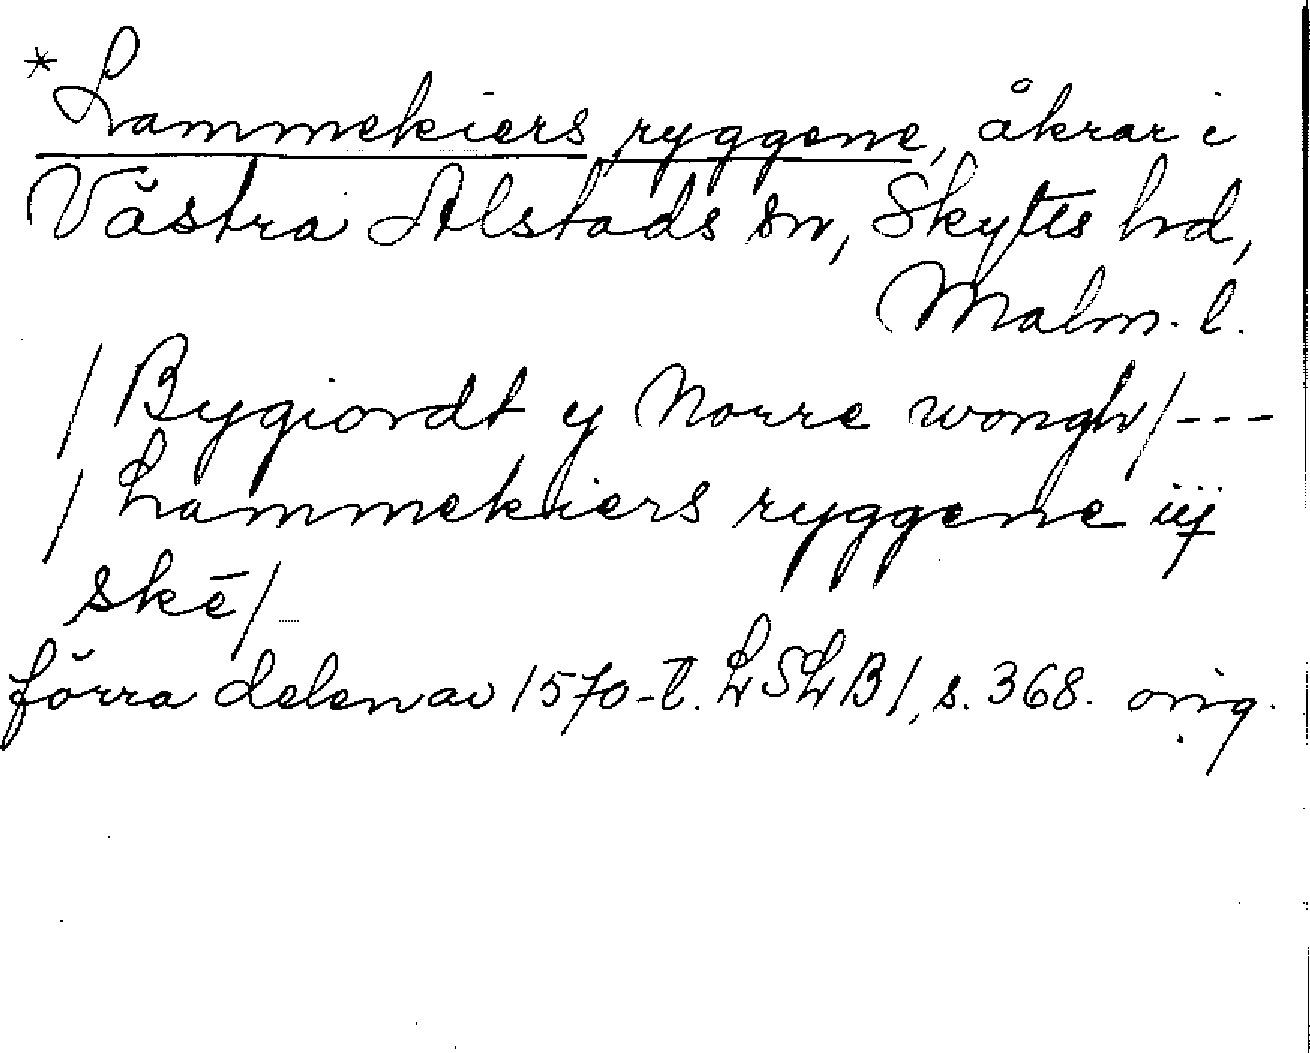 *Lammekiers ryggene, åkrar i
Västra Alstads sn, Skytts hd,
Malm. l.
/Bygiordt y Norre wongh/---
/Lammekiers ryggene iij
skē/
förra delen av 1570-t. LSLB1, s. 368. orig.